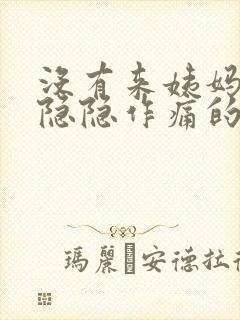 没有来姨妈
隐隐作痛的
瑪麗 安德拉